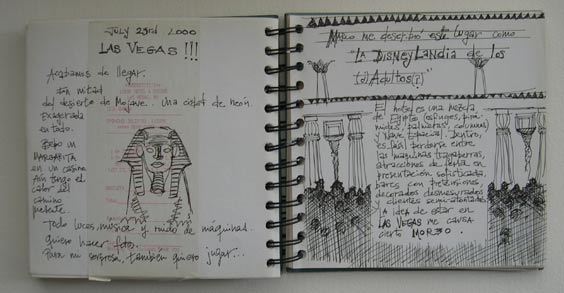 JULY 23rd 2000
LAS VEGAS!!!
Acabamos de llegar.
En mitad
del desierto de Mojave. Una ciudad de neón.
Exagerada
en todo.
Bebo un
MARGARITA
en un casino
Aún tengo el
calor del
camino
presente.
Todo luces, música y ruido de máquinas.
Quiero hacer fotos.
Para mi sorpresa, también quiero jugar...
MARCO me describió este lugar como
"LA DISNEYLANDIA de los
(d)Adultos(?)"
El hotel es una mezcla
de Egipto (esfinges, pirá-
mides, palmeras, columnas)
y Nave Espacial. Dentro,
es fácil perderse entre
las máquinas tragaperras,
atracciones de feria en
presentación sofisticada,
bares con pretensiones,
decorados desmesurados
y clientes semi-atontados.
La idea de estar en
LAS VEGAS me causa
cierto MORBO.